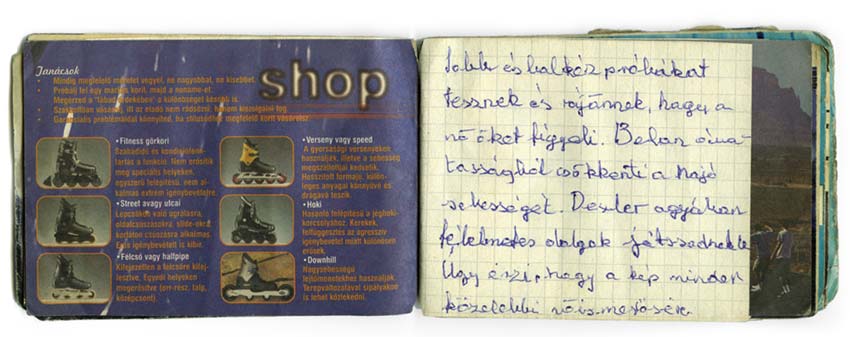 Tanácsok
shop
• Mindig megfelelő méretet vegyél, ne nagyobbat, ne kisebbet.
• Próbálj fel egy márkás korit, majd a noname-et.
• Megérzed a "lábad érdekében" a különbséget később is.
• Szakboltban vásárolj, itt az eladó nem rádsózni, hanem kiszolgálni fog.
• Garanciális problémáidat könnyíted, ha stílusodhoz megfelelő korit vásárolsz.
• Fitness görkori
Szabadidő és kondíciófenn-
tartás a funkció. Nem erősítik
meg speciális helyeken,
egyszerű felépítésű, nem al-
kalmas extrém igénybevételre.
• Street avagy utcai
Lépcsőkön való ugrálásra,
oldalcsúszásokra, slide-okra,
korláton csúszásra alkalmas.
Erős igénybevételt is kibír.
• Félcső vagy halfpipe
Kifejezetten a félcsőre kifej-
lesztve. Egyedi helyeken
megerősítve (orr-rész, talp,
középcsont).
• Verseny vagy speed
A gyorsasági versenyeken
használják, illetve a sebesség
megszállottjai kedvelik.
Hosszított formája, külön-
leges anyagai könnyűvé és
drágává teszik.
• Hoki
Hasonló felépítésű a jéghoki-
korcsolyához. Kerekek,
felfüggesztés az agresszív
igénybevétel miatt különösen
erősek.
• Downhill
Nagysebességű
lejtőmenetekhez használják.
Terepváltozatával sípályákon
is lehet közlekedni.
Jobb és balkéz próbákat
tesznek és rájönnek, hogy a
nő őket figyeli.
csökkenti a hajó
sebességét. Dexler agyában
félelmetes dolgok játszódnak le
Úgy érzi, hogy a kép minden
közelebbi